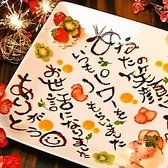 の笑顔
いつもパワーを
もらいました
お世話になりました
ありがとう